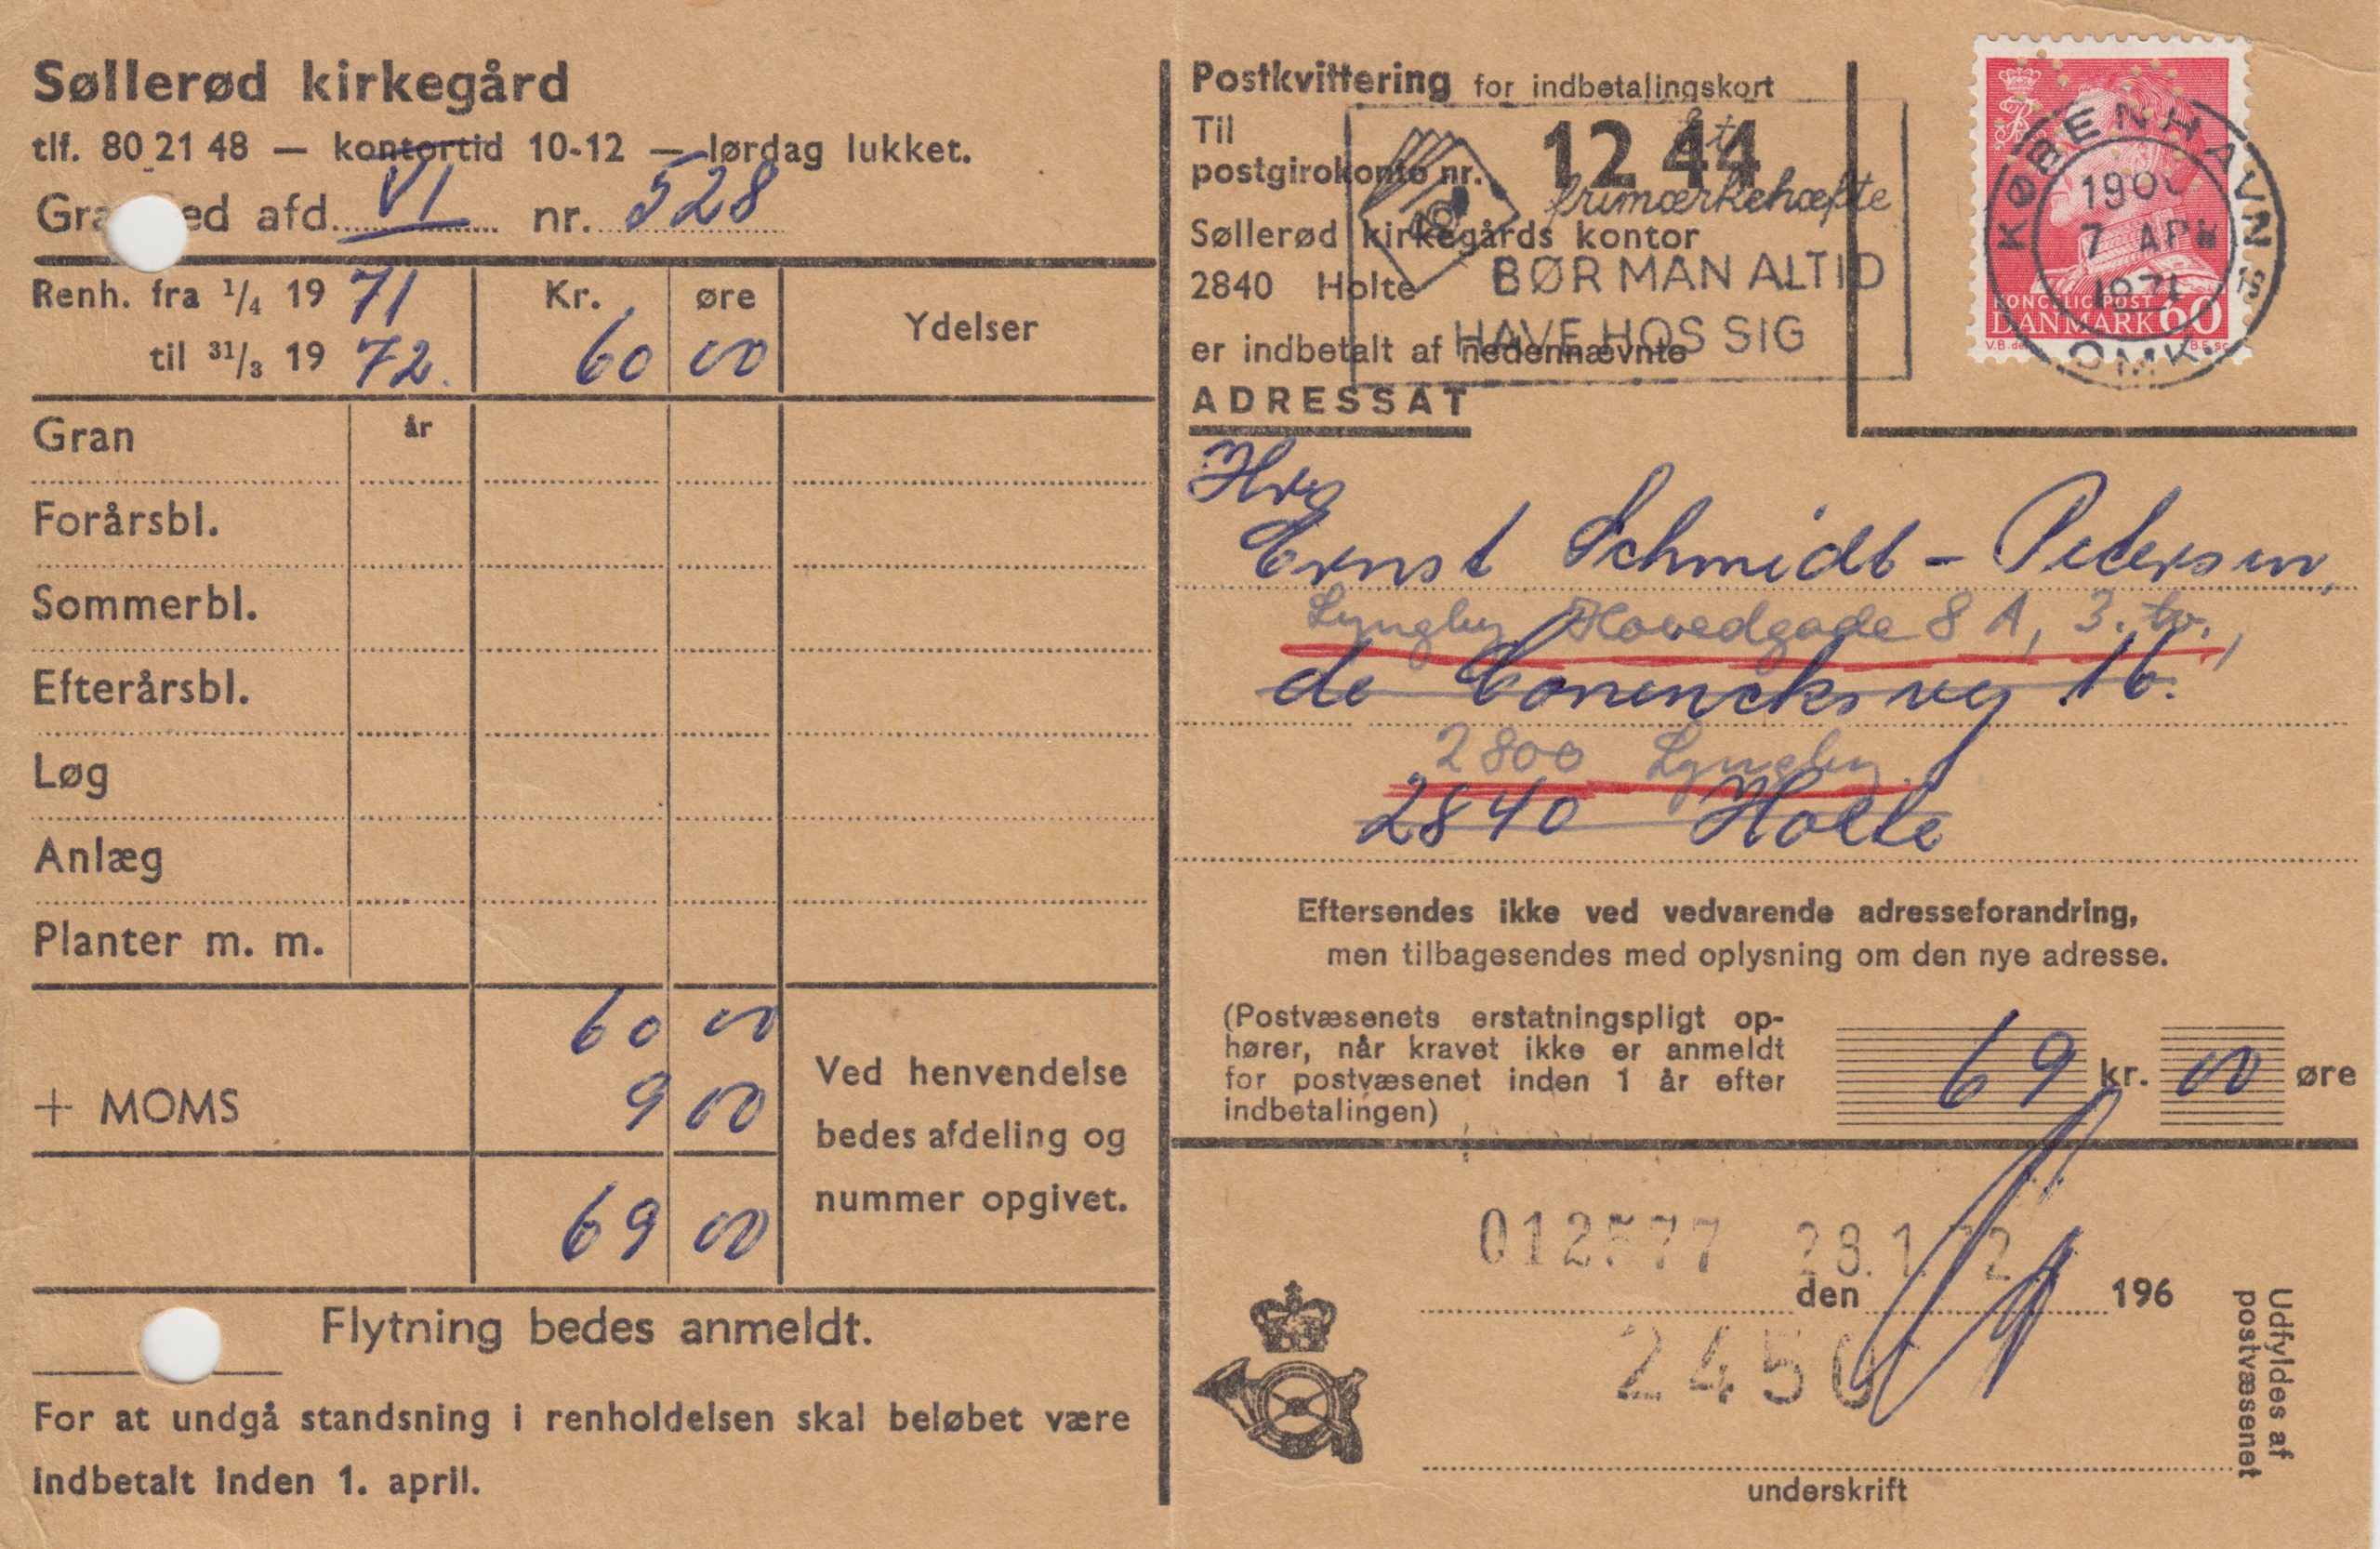 Søllerød kirkegård
tlf. 80 21 48 — kontortid 10-12 — lørdag lukket.
Gra ed afd. VI nr. 528
Renh. fra 1/4 19 71
til 31/3 19 72.
Kr. øre
60 00
Ydelser
Gran år
Forårsbl.
Sommerbl.
Efterårsbl.
Løg
Anlæg
Planter m. m.
60 00
+ MOMS 9 00
69 00
Ved henvendelse
bedes afdeling og
nummer opgivet.
Flytning bedes anmeldt.
For at undgå standsning i renholdelsen skal beløbet være
indbetalt inden 1. april.
Postkvittering for indbetalingskort
Til
postgirokonto nr. 12 44
Søllerød kirkegårds kontor
2840 Holte
er indbetalt af nedennævnte
ADRESSAT
Et
frimærkehæfte
BØR MAN ALTID
HAVE HOS SIG
KØBENHAVN
7 APR
1971
OMK.
KONGELIG POST
DANMARK 60
V.B. del.
Hr.
Ernst Schmidt-Petersen,
Lyngby Hovedgade 8 A, 3. tv.,
de Conincksvej 16.
2800 Lyngby.
2840 Holte
Eftersendes ikke ved vedvarende adresseforandring,
men tilbagesendes med oplysning om den nye adresse.
(Postvæsenets erstatningspligt op-
hører, når kravet ikke er anmeldt
for postvæsenet inden 1 år efter
indbetalingen)
69 kr. 00 øre
012577 28.1.72
den 196
2450
underskrift
Udfyldes af
postvæsenet